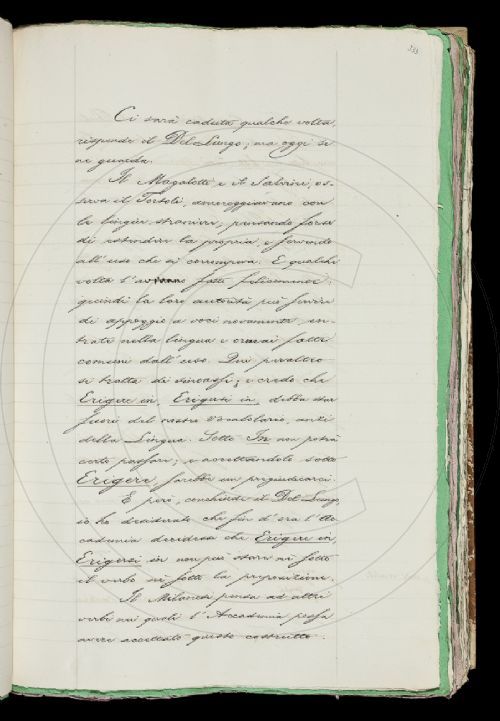 Ci sarà caduta qualche volta,
risponde il Del Lungo; ma oggi se
ne guarda.
Il Magalotti e il Salvini, os-
serva il Tortoli, amoreggiavano con
le lingue straniere, pensando forse
di estender la propria, e facendo
all'uso che si corrompeva. E qualche
volta l'avranno fatto felicemente:
quindi la loro autorità può servire
di appoggio a voci novamente en-
trate nella lingua e ormai fatte
comuni dall'uso. Qui peraltro
si tratta di sintassi; e credo che
Erigere in, Erigersi in, debba star
fuori del nostro Vocabolario, anzi
della Lingua. Sotto In non potrà
certo passare; e accettandolo sotto
Erigere, sarebbe un pregiudicarci.
E però, conchiude il Del Lungo,
io ho desiderato che fin d'ora l'Ac
cademia decidesse che Erigere in,
Erigersi in non può stare nè sotto
il verbo nè sotto la preposizione.
Il Milanesi pensa ad altri
verbi nei quali l'Accademia possa
avere accettato questo costrutto.